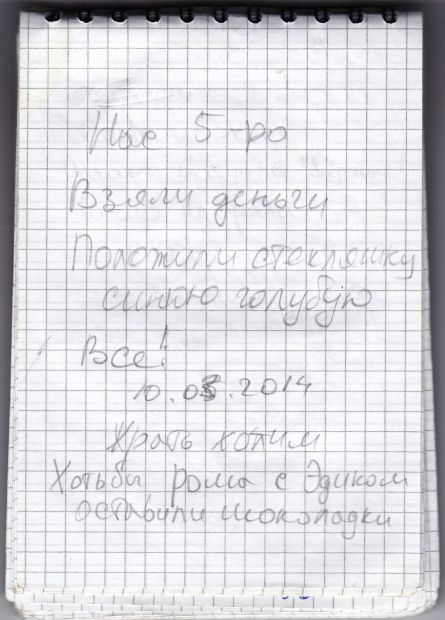 Нас 5-ро
Взяли деньги
Положили стекляшку
синюю голубую
Все!
10.05.2014
Жрать хотим
Хотьбы рома с Эдиком
оставили шоколадки